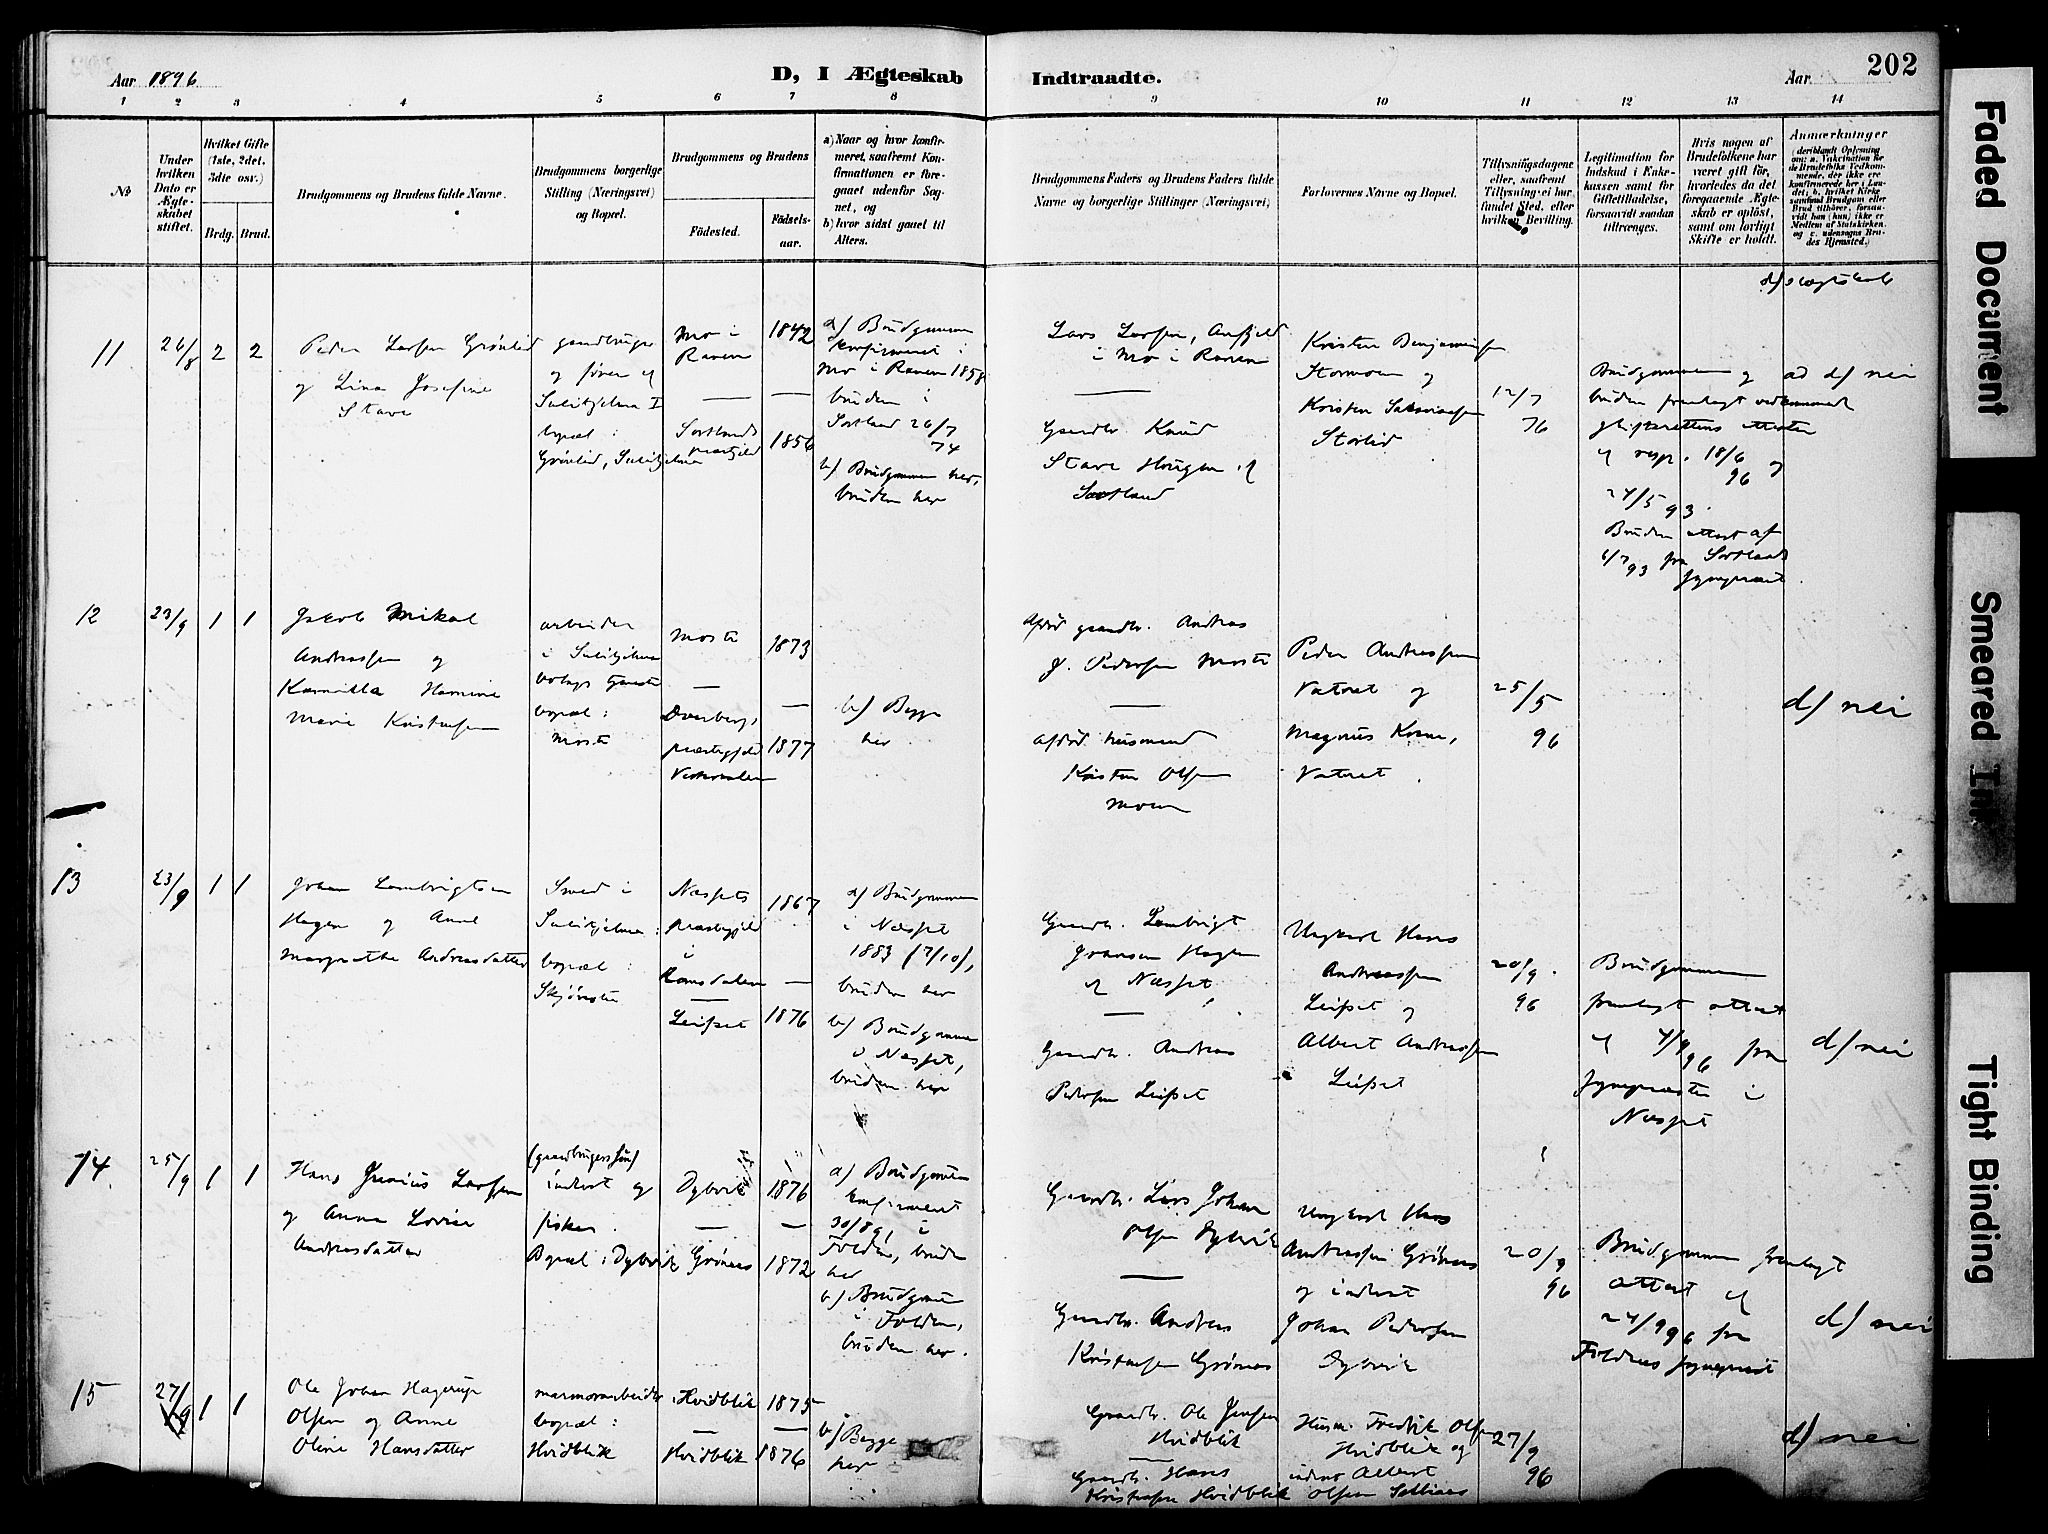 Aar 1896.
D, I Ægteskab
Indtraadte.
Aar
202
1 2 3 4 5 6 7 8 9 10 11 12 13 14
No
Under hvilken Dato er Ægteskabet stiftet.
Hvilket Gifte (1ste, 2det, 3die osv.)
Brdg. Brud.
Brudgommens og Brudens fulde Navne.
Brudgommens borgerlige Stilling (Næringsvei) og Bopæl.
Brudgommens og Brudens
Födested.
Födselsaar.
a) Naar og hvor konfirmeret, saafremt Konfirmationen er foregaaet udenfor Sognet, og
b) hvor sidst gaaet til Alters.
Brudgommens Faders og Brudens Faders fulde Navne og borgerlige Stillinger (Næringsvei)
Forlovernes Navne og Bopæl.
Tillysningsdagene eller, saafremt Tillysning ei har fundet Sted, efter hvilken Bevilling.
Legitimation for Indskud i Enkekassen samt for Giftetilladelse, forsaavidt saadan tiltrænges.
Hvis nogen af Brudefolkene har været gift för, hvorledes da det foregaaende Ægteskab er oplöst, samt om lovligt Skifte er holdt.
Anmærkninger
(deriblandt Oplysning om: a. Vakcination for de Brudefolks Vedkommende, der ikke ere konfirmerede her i Landet; b. hvilket Kirkesamfund Brudgom eller Brud tilhører, forsaavidt han (hun) ikke er Medlem af Statskirken, og c. udensogns Brudes Hjemsted.)
11
26/8
2
2
Peder Larsen Grønlid
og Lina Josefine
Stave
gaardbruger
og
Sulitjelma I
bopæl:
Grønlid, Sulitjelma
Mo i
Ranen
1842
Sortlands
1856
a) Brudgommen
konfirmeret i
Mo i Ranen 1858
bruden i
Sortland 26/7
74
b) Brudgommen her,
bruden her
Lars Larsen, Anfjeld
i Mo i Ranen
Gaardbr. Knud
Stave Haugen af
Sortland
Kristen Benjaminsen
Stormoen og
Kristen
Storlid
12/7
Brudgommen og
bruden fremlagt vedkommende
skifterettens attester
af resp. 18/6 96 og
24/5 93.
Bruden attest af
93 fra Sortlands
sognepræst.
ad d) nei
12
23/9
1
1
Jakob Mikal
Andreassen og
Kamilla
Marie Kristensen
arbeider
i Sulitjelma
bopæl:
Moste
Moste
1873
Dverberg,
præstegjeld
Vesteraalen
1877
b) Begge
her
afdød gaardbr. Andreas
Pedersen Moste
afdød husmand
Kristen Olsen
Moen
Peder Andreassen
Vatnet og
Magnus
Vatnet.
25/5
96
d) nei
13
23/9
1
1
Johan Lambrigtsen
Hagen og Anne
Margrethe Andreasdatter
Smed i
Sulitjelma:
bopæl:
Skjønstu
Næssets
præstegjeld
i
Romsdalen
1867
Leifset
1876
a) Brudgommen
i Næsset
1883 (7/10),
bruden her
b) Brudgommen
i Næsset,
bruden her
Gaardbr. Lambrigt
Hagen
af Næsset
Gaardbr. Andreas
Pedersen Leifset
Ungkarl Hans
Andreassen
Leifset og
Albert Andreassen
Leifset
20/9
96
Brudgommen
fremlagt attest
af 4/9 96 fra
sognepræsten i
Næsset
d) nei
14
25/9
1
1
Hans Junius Larssen
og Anna Lovise
Andreasdatter
(gaardbrugerssøn)
inderst og
fisker.
Bopæl: Dybvik
Dybvik
1876
Grønnes
1872
a) Brudgommen
konfirmeret
i
Folden, bruden
her
b) Brudgommen
i Folden,
bruden her.
Gaardbr. Lars Johan
Olsen Dybvik
Gaardbr. Andreas
Kristensen Grønnes
Ungkarl Hans
Andreassen Grønnes
og inderst
Johan Pedersen
Dybvik
20/9
96
Brudgommen fremlagt
attest af
24/9 96 fra
Foldens sognepræst
d) nei
15
27/9
1
1
Ole Johan Hagerup
Olsen og Anne
Oline Hansdatter
marmorarbeider
bopæl:
Hvidblik
Hvidblik
1875
Hvidblik
1876
b) Begge
her
Gaardbr. Ole Jensen
Hvidblik
Gaardbr. Hans
Kristensen Hvidblik
Husm. Fredrik Olsen
Hvidblik og
inderst Albert
Olsen
27/9
96
d) nei
Faded Document
Smeared Ink
Tight Binding